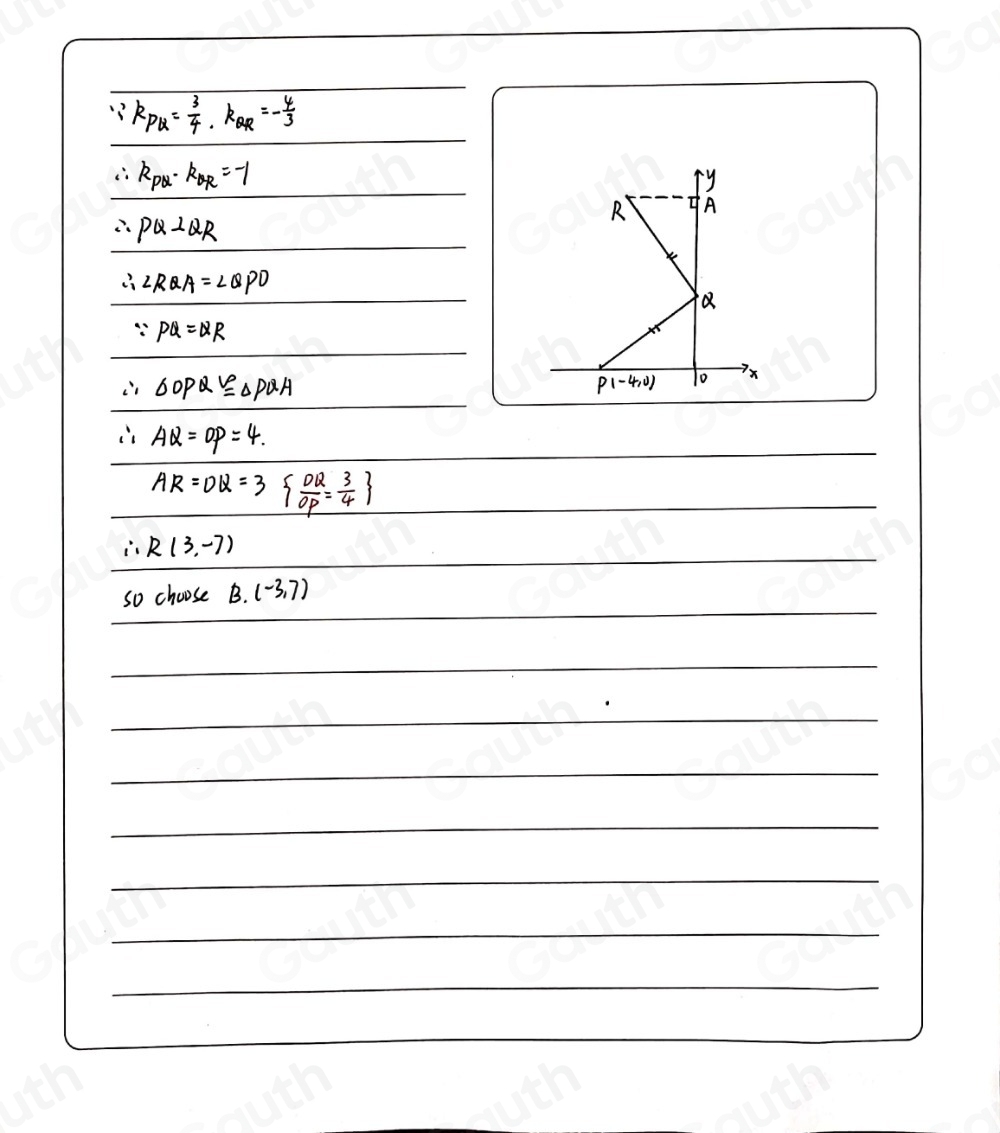 ∵ k_PQ = 3/4 . k_QR = -4/3
∴ k_PQ · k_QR = -1
∴ PQ ⊥ QR
∴ ∠RQA = ∠QPO
∵ PQ = QR
∴ △OPQ ≌ △PQA
∴ AQ = OP = 4.
AR = OQ = 3 { OQ/OP = 3/4 }
∴ R (3,-7)
so choose B. (-3,7)
y
R
A
Q
P(-4,0)
0
x
Gauth